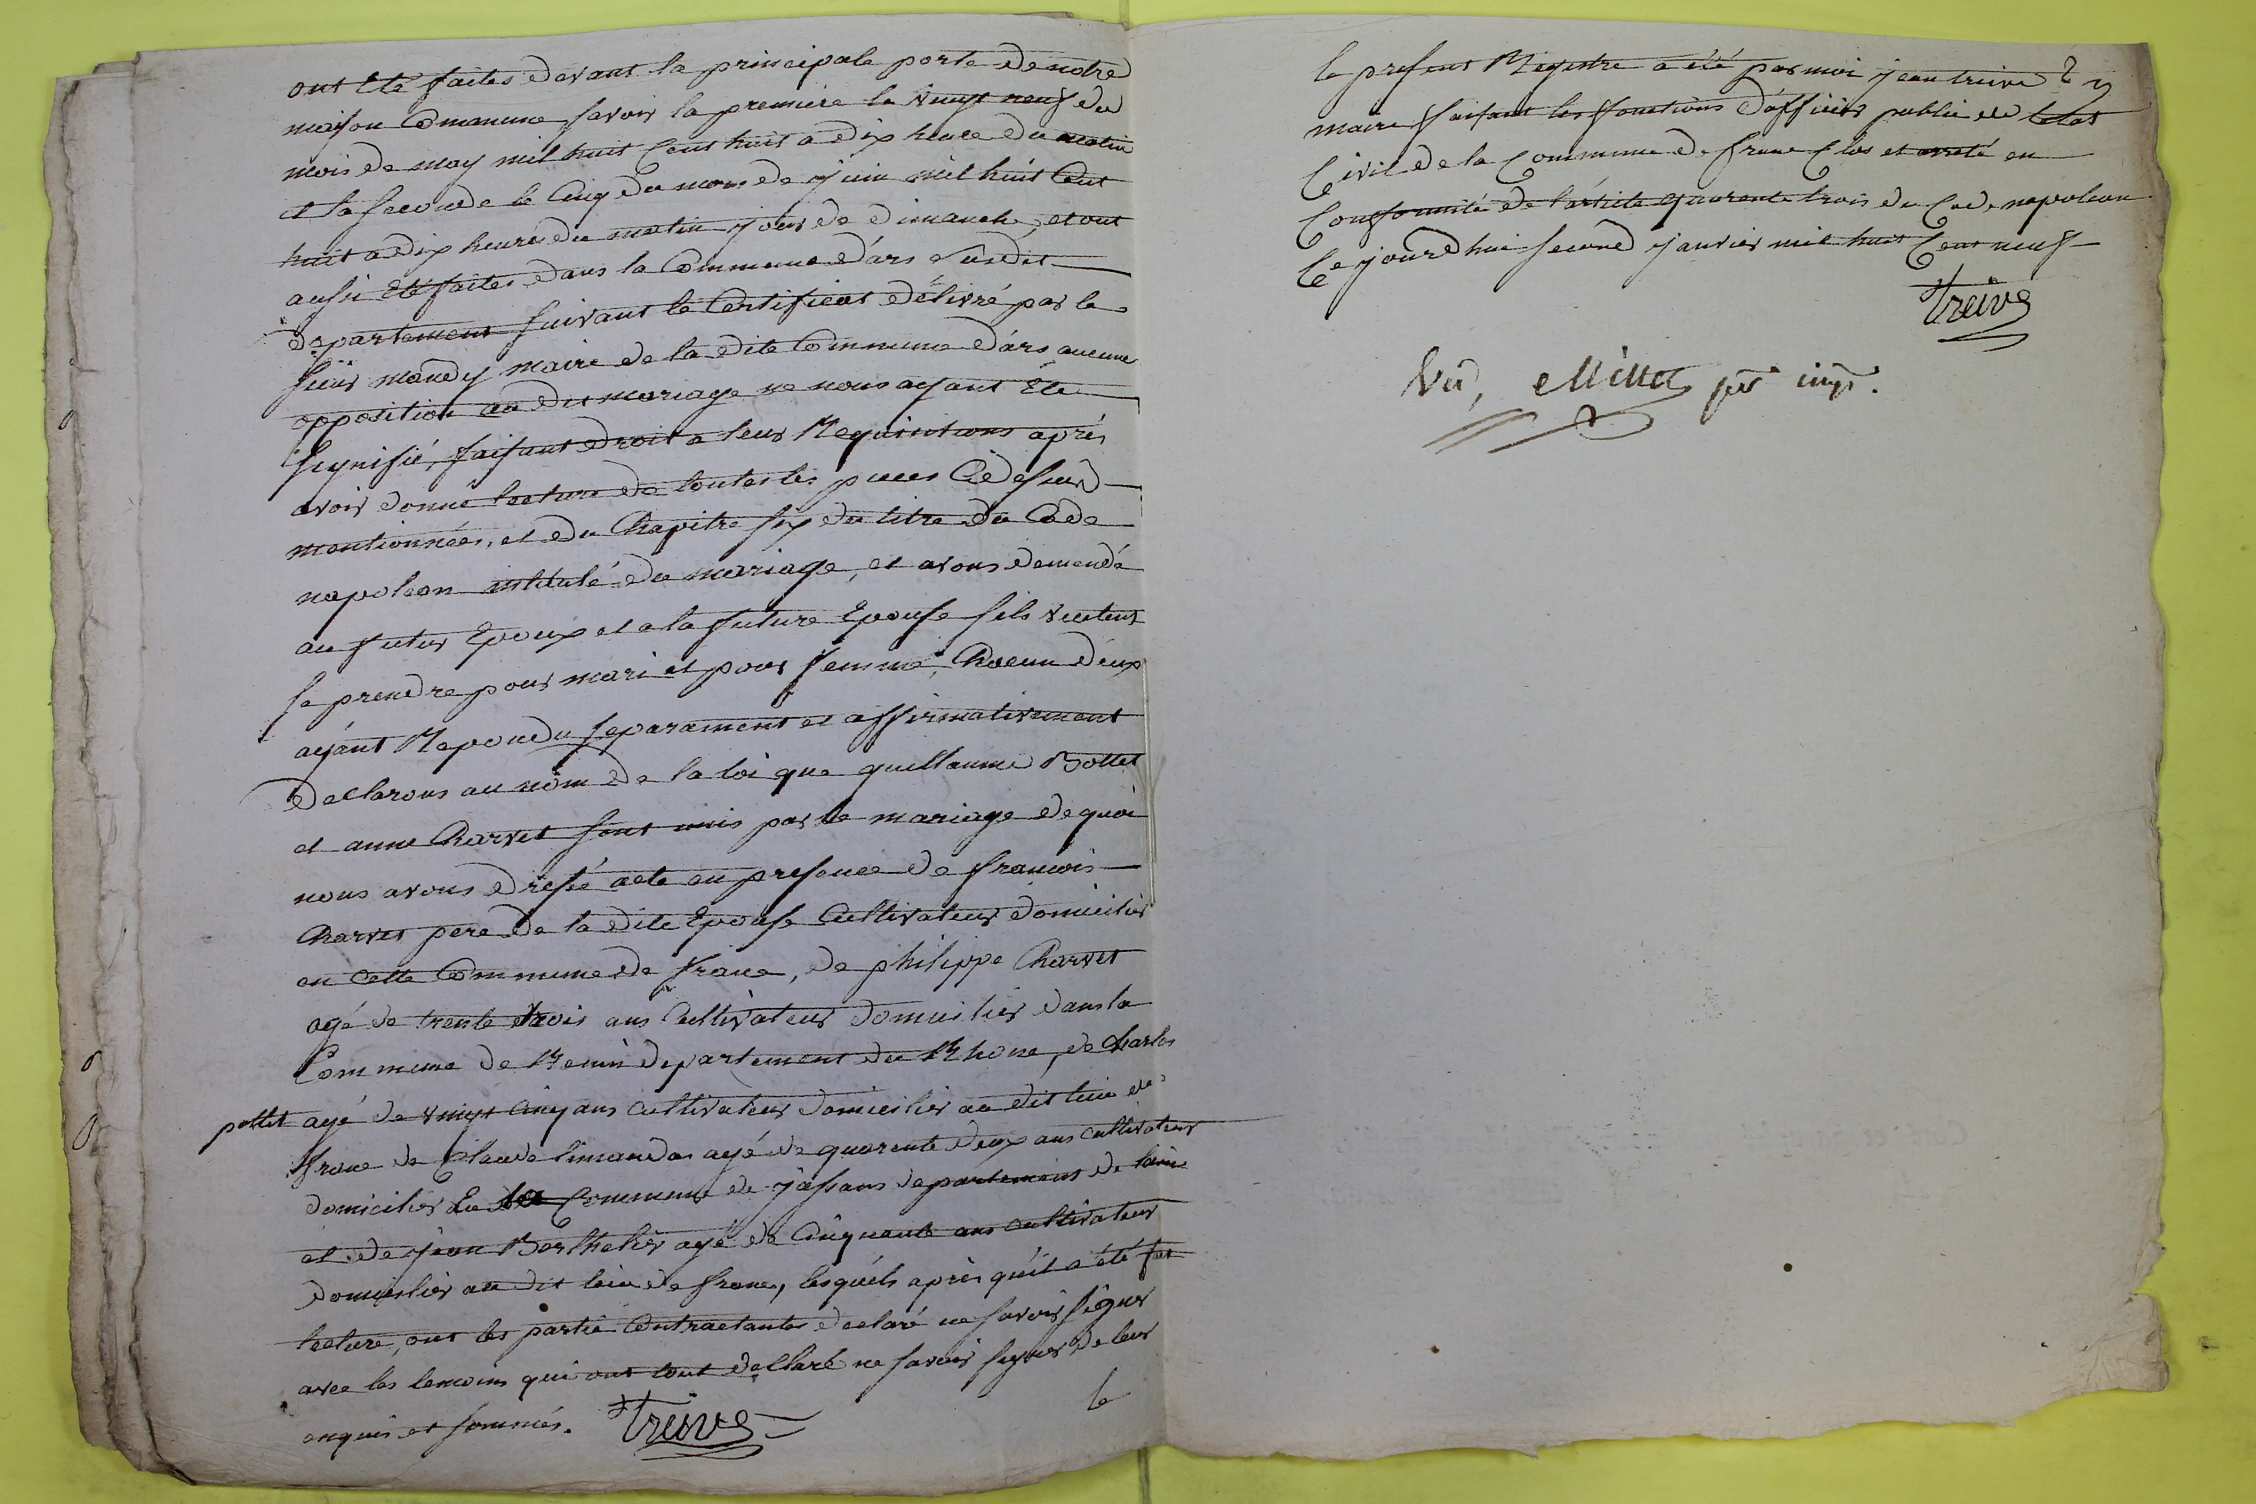 ont Eté faites devant la principale porte de notre
maison Commune, savoir la premiere le vingt neuf du
mois de may mil huit Cent huit a dix heure du matin
et la seconde le Cinq du mois de juin mil huit Cent
huit a dix heures du matin jour de dimanche, et ont
aussi Eté faites dans la Commune d'ars susdit
departement suivant le Certificat délivré par le
sieur mandy maire de la dite Commune d'ars, aucune
opposition au dit mariage ne nous ayant Eté
signifié, faisant droit a leur Requisitions après
avoir donné lecture de toutes les pieces Cidessus
mentionnées, et du Chapitre six du titre du Code
napoleon intitulé du mariage, et avons demendé
au futur Epoux et a la future Epouse sils veulent
se prendre pour mari et pour femme, Chacun d'eux
ayant Repondu separament et affirmativement
declarons au nom de la loi que guillaume Bottet
et anne Charvet sont unis par le mariage de quoi
nous avons dressé acte en presence de francois
Charvet pere de la dite Epouse Cultivateur domicilier
en cette Commune de frane, de philippe Charvet
agé de trente trois ans Cultivateur domicilier dans la
Commune de departement du Rhone, de Charles
pottet agé de vingt Cinq ans cultivateur domicilier au dit lieu de
frane de Claude limandas agé de quarente deux ans cultivateur
domicilier En la Commune de jassans departement de lain
et de jean Berthelier agé de Cinquante ans cultivateur
domicilier au dit lieu de frane, lesquéls après quil a été fait
lecture, ont les partie Contractantes declaré ne savoir signer
avec les temoins qui ont tout declaré ne savoir signer de leur
enquis et sommés. Treive
le
le present Registre a été par moi jean treive
maire faisant les fonctions d'officier public de letat
Civil de la Commune de frane Clos et arreté en
Conformité de l'article quarente trois du Code napoleon
Ce jourd'hui second janvier mil huit Cent neuf
Treive
Vu, Millet